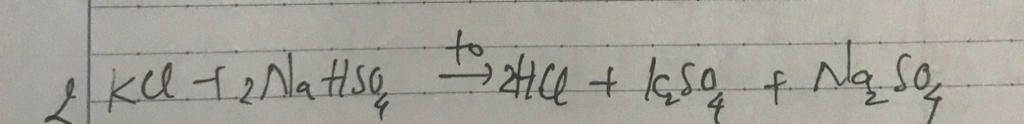 2 KCl + 2NaHSO₄ →t⁰ 2HCl + K₂SO₄ + Na₂SO₄